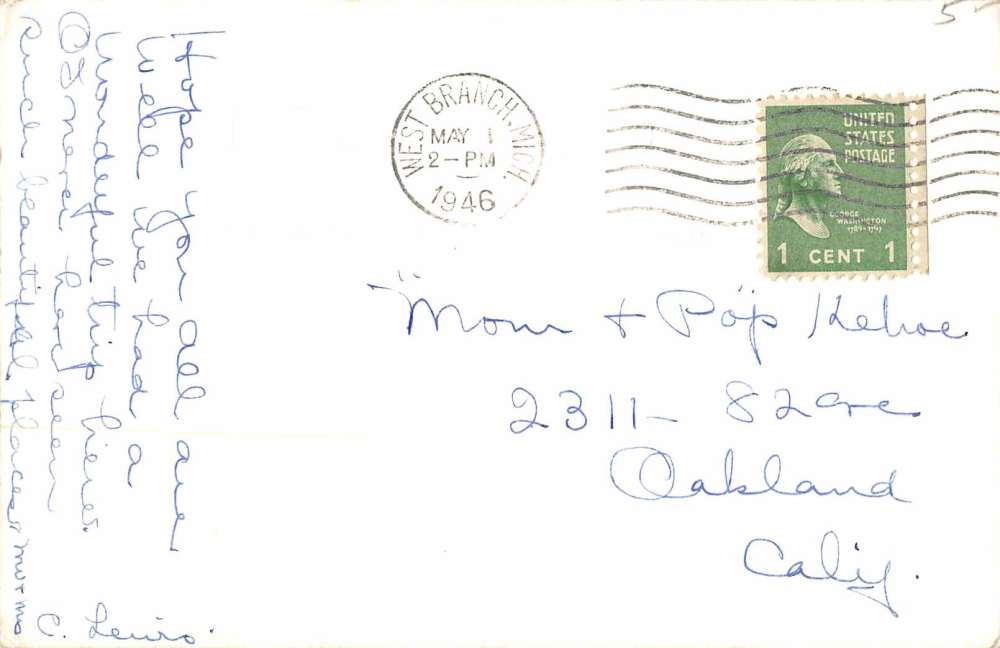 Hope you all are
well we had a
wonderful trip here.
I never have seen
such beautiful places.
Mr + Mrs
C. Lewis.
5
WEST BRANCH, MICH.
MAY 1
2-PM
1946
UNITED
STATES
POSTAGE
GEORGE
WASHINGTON
1789-1797
1 CENT 1
"Mom + Pop" Kehoe
2311- 82 ave
Oakland
Calif.